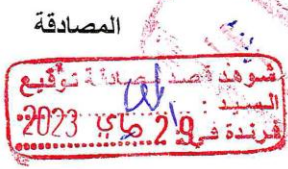 المصادقة
شوهد قصد مصادقة توقيع
السيد :
فرندة في 29 ماي 2023